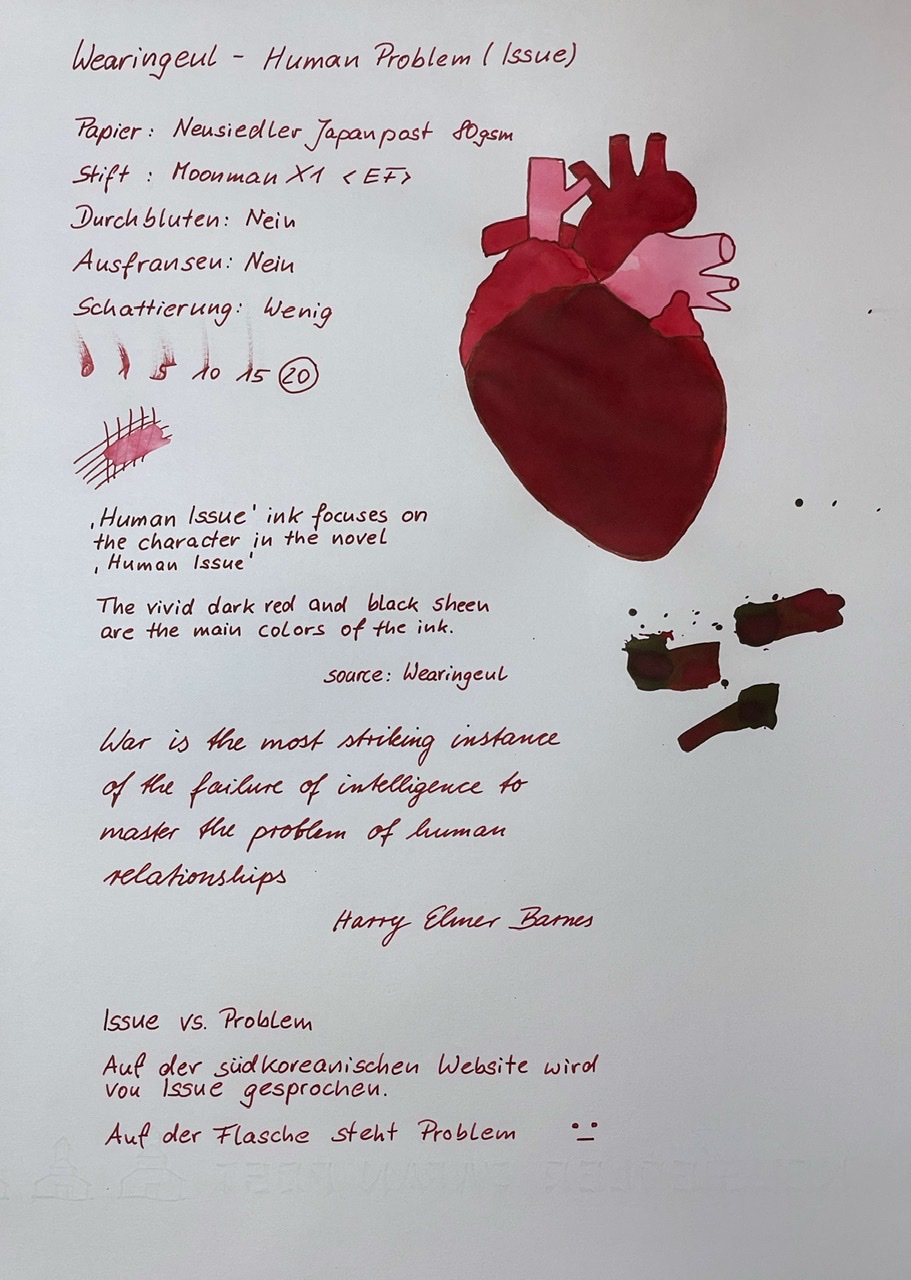 Wearingeul - Human Problem (Issue)
Papier: Neusiedler Japanpost 80gsm
Stift : Moonman X1 <EF>
Durchbluten: Nein
Ausfransen: Nein
Schattierung: Wenig
0 1 5 10 15 20
‚Human Issue' ink focuses on
the character in the novel
‚Human Issue'
The vivid dark red and black sheen
are the main colors of the ink.
source: Wearingeul
War is the most striking instance
of the failure of intelligence to
master the problem of human
relationships
Harry Elmer Barnes
Issue vs. Problem
Auf der südkoreanischen Website wird
von Issue gesprochen.
Auf der Flasche steht Problem